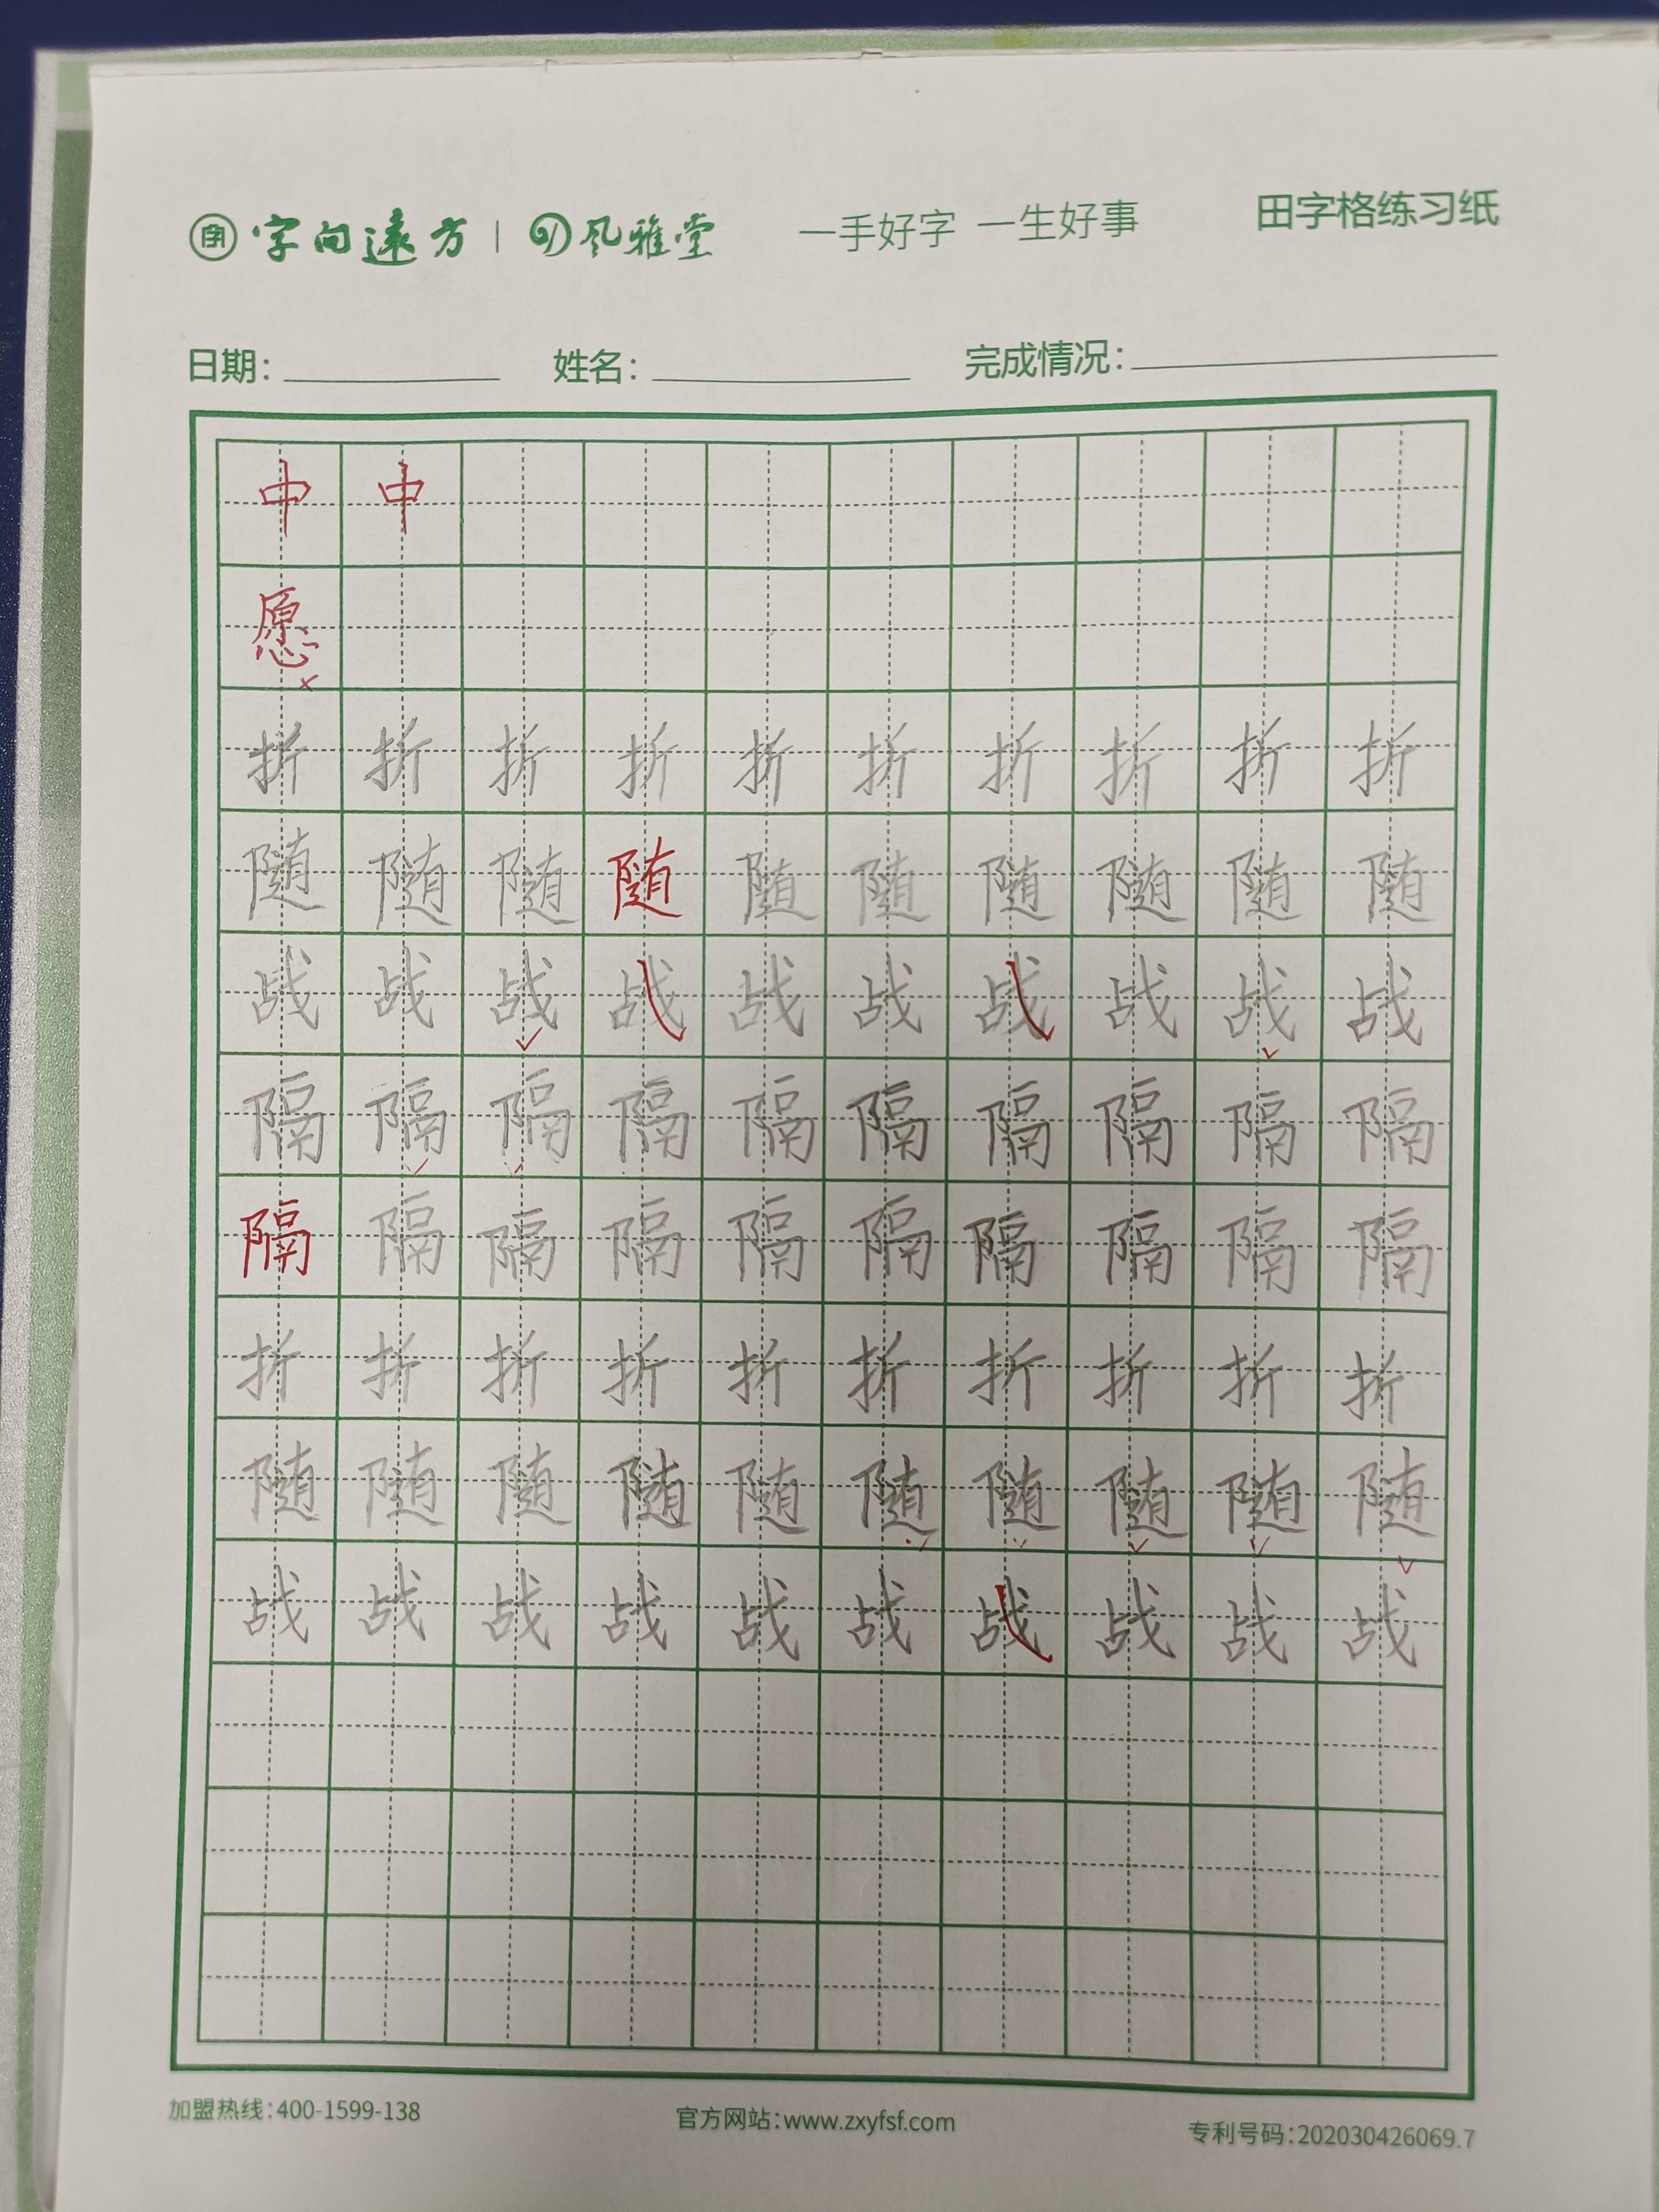 字 字向遠方 | 风雅堂 一手好字 一生好事 田字格练习纸
日期： 姓名： 完成情况：
中 中
愿
折 折 折 折 折 折 折 折 折 折
随 随 随 随 随 随 随 随 随 随
战 战 战 战 战 战 战 战 战 战
隔 隔 隔 隔 隔 隔 隔 隔 隔 隔
隔 隔 隔 隔 隔 隔 隔 隔 隔 隔
折 折 折 折 折 折 折 折 折 折
随 随 随 随 随 随 随 随 随 随
战 战 战 战 战 战 战 战 战 战
加盟热线：400-1599-138 官方网站：www.zxyfsf.com 专利号码：202030426069.7